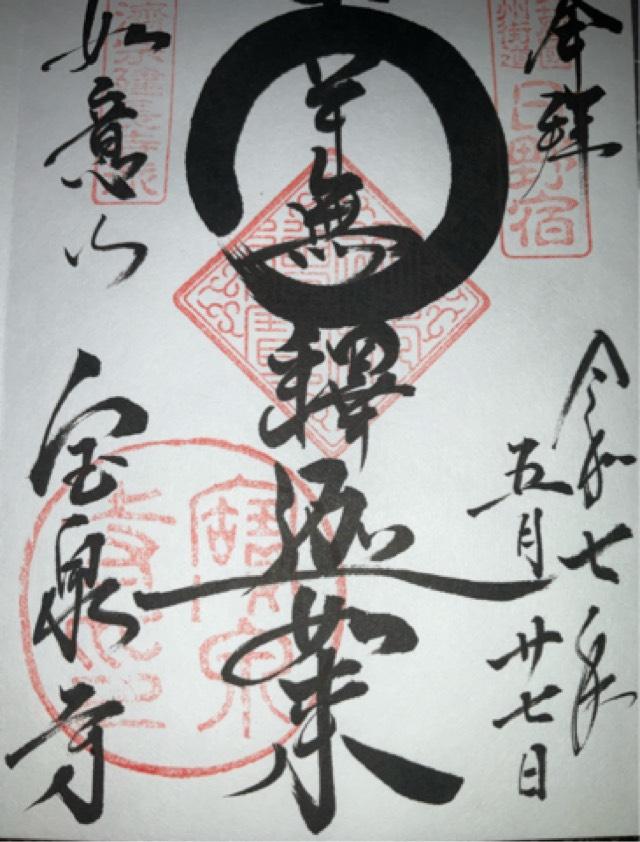 奉拝
日野宿
令和七年
五月廿七日
南無釋迦如来
如意山
宝泉寺